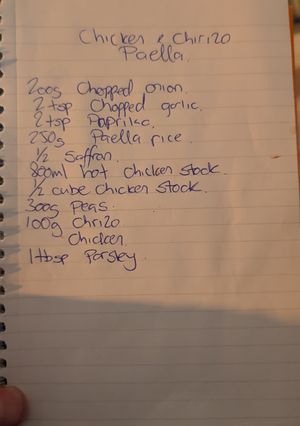 Chicken & Chirizo
Paella.
200g Chopped onion.
2 tsp Chopped garlic.
2 tsp Paprika.
250g Paella rice.
1/2 Saffron.
800ml hot chicken stock.
1/2 cube chicken stock.
300g Peas.
100g Chrizo
Chicken.
1 tbsp Parsley.